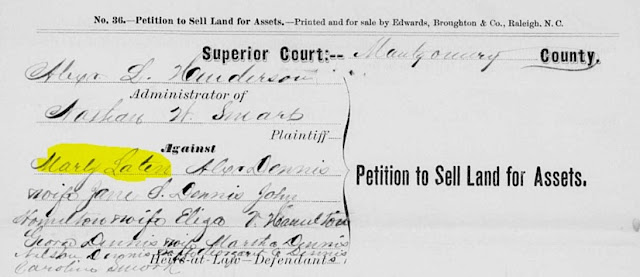 No. 36.—Petition to Sell Land for Assets.—Printed and for sale by Edwards, Broughton & Co., Raleigh, N. C.
Superior Court:-- Montgomery County.
Alex L. Henderson
Administrator of
Nathan W. Smart
Plaintiff
Against
Marly Laten Alex Dennis
wife Jane S. Dennis John
Hamilton & wife Eliza V Hamilton
George Dennis & wife Martha Dennis
Nelson Dennis Dennis
Heirs-at-Law—Defendants
Caroline
Petition to Sell Land for Assets.